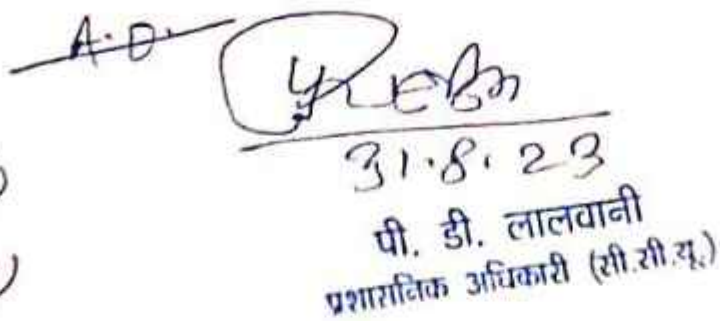 A.D.
31.8.23
पी. डी. लालवानी
प्रशासनिक अधिकारी (सी.सी.यू.)